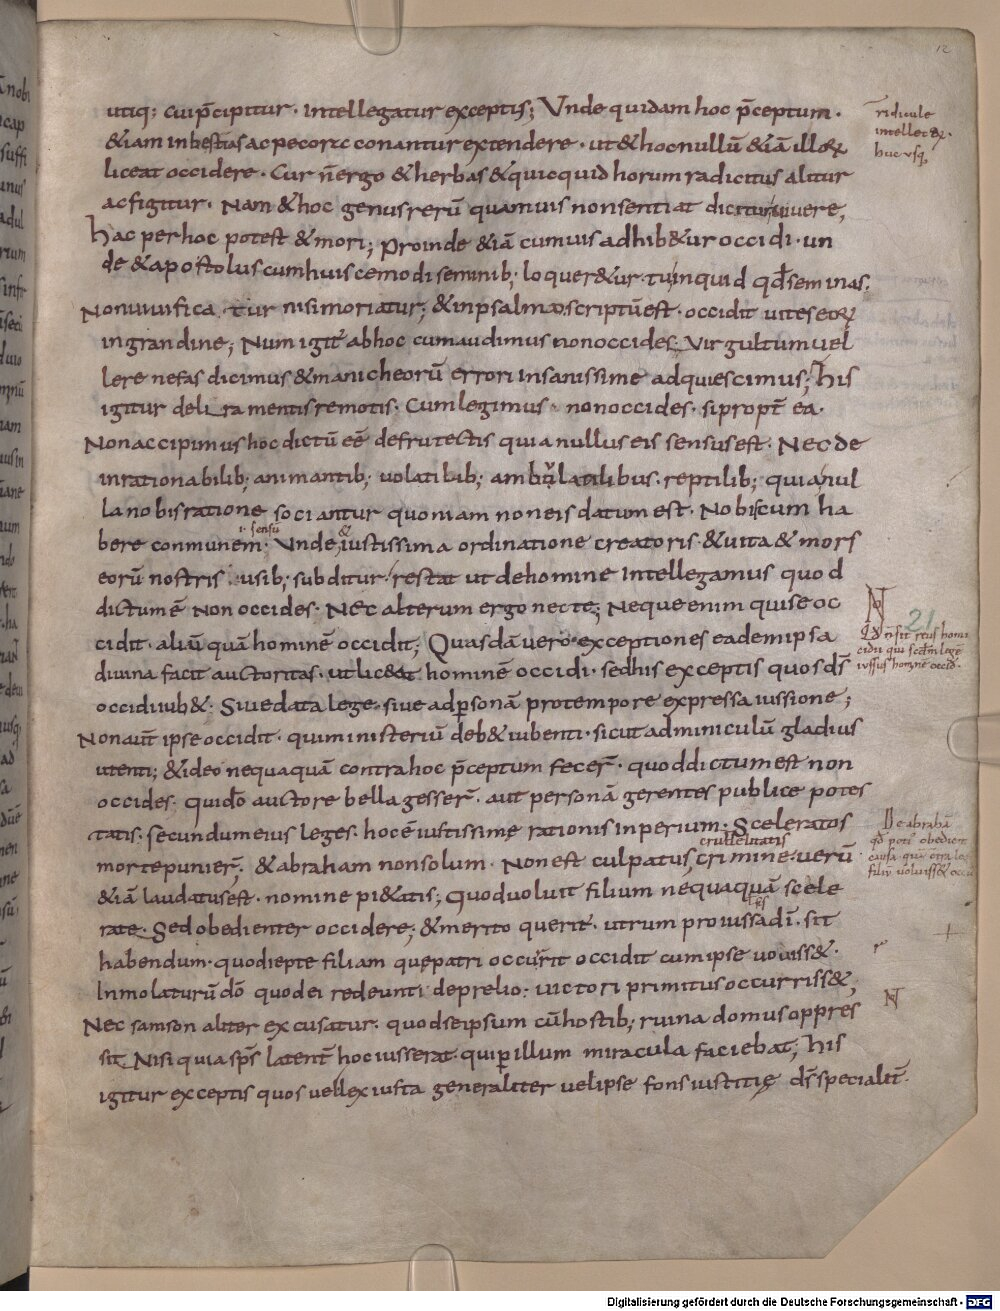 12
utiq; cui p̄cipitur · intellegatur exceptis; Unde quidam hoc p̄ceptum ·
&iam in bestias ac pecora conantur extendere · ut & hoc nullū &iā illoꝝ
liceat occidere · Cur n̄ ergo & herbas & quicquid horum radicitus alitur
ac figitur · Nam & hoc genus rerū quamuis non sentiat dicitur uiuere,
hac per hoc potest & mori; proinde &iā cum uis adhib&ur occidi · un
de & apostolus cum huiuscemodi seminib; loquer&ur · tu inquid qđ seminas;
Non uiuificatur nisi moriatur; & in psalmo scriptū est · occidit uites eoꝝ
in grandine; Num igit̄ ab hoc cum audimus non occides; Virgultum uel
lere nefas dicimus & manicheorū errori insanissime adquiescimus; His
igitur deliramentis remotis · Cum legimus · non occides · si propt̄ ea ·
Non accipimus hoc dictū eē de frutectis quia nullus eis sensus est · Nec de
inrationabilib; animantib; uolatilib; ambulatilibus · reptilib; quia nul
la nobis ratione sociantur quoniam non eis datum est · Nobiscum ha
i· sensū &
bere conmunem; Unde iustissima ordinatione creatoris · & uita & mors
eorū nostris usib; subditur · restat ut de homine intellegamus quod
dictum ē Non occides · Nec alterum ergo nec te; Neque enim qui se oc
cidit · aliū quā hominē occidit; Quasdā uero exceptiones eadem ipsa
diuina facit auctoritas · ut liceat hominē occidi · sed his exceptis quos d̄s
occidi iub& · Siue data lege · siue ad p̱sonā pro tempore expressa iussione;
Non aut̄ ipse occidit · qui ministeriū deb& iubenti · sicut adminiculū gladius
utenti; & ideo nequaquā contra hoc p̄ceptum fecer̄ · quod dictum est non
occides · qui dō auctore bella gesser̄ · aut personā gerentes publice potes
tatis · secundum eius leges · hoc ē iustissime rationis inperium · Sceleratos
crudelitatis
morte punier̄; & abraham non solum · Non est culpatus crimine · uerū
&iā laudatus est · nomine pi&atis; Quod uoluit filium nequaquā scele
rate · Sed obedienter occidere; & merito querit̄ · utrum pro iussa dī · sit
habendum · quod iepte filiam que patri occurrit occidit cum ipse uouiss& ·
Inmolaturū dō quod ei redeunti de prelio · uictori primitus occurriss&;
Nec samson aliter excusatur · quod se ipsum cū hostib; ruina domus oppres
sit Nisi quia sp̄s latent̄ hoc iusserat · qui p̱ illum miracula faciebat; His
igitur exceptis quos uel lex iusta generaliter uel ipse fons iustitię d̄s specialit̄ ·
ridicule
intellect&·
hucusq;
N̄
21
Qđ n̄ sit reus homi
cidii qui scd̄m legē
iussus hominē occid̄·
De abrahā
qđ poti' obedien
causa quā contra
filiū uoluiss& occi
r
N̄
Digitalisierung gefördert durch die Deutsche Forschungsgemeinschaft - DFG